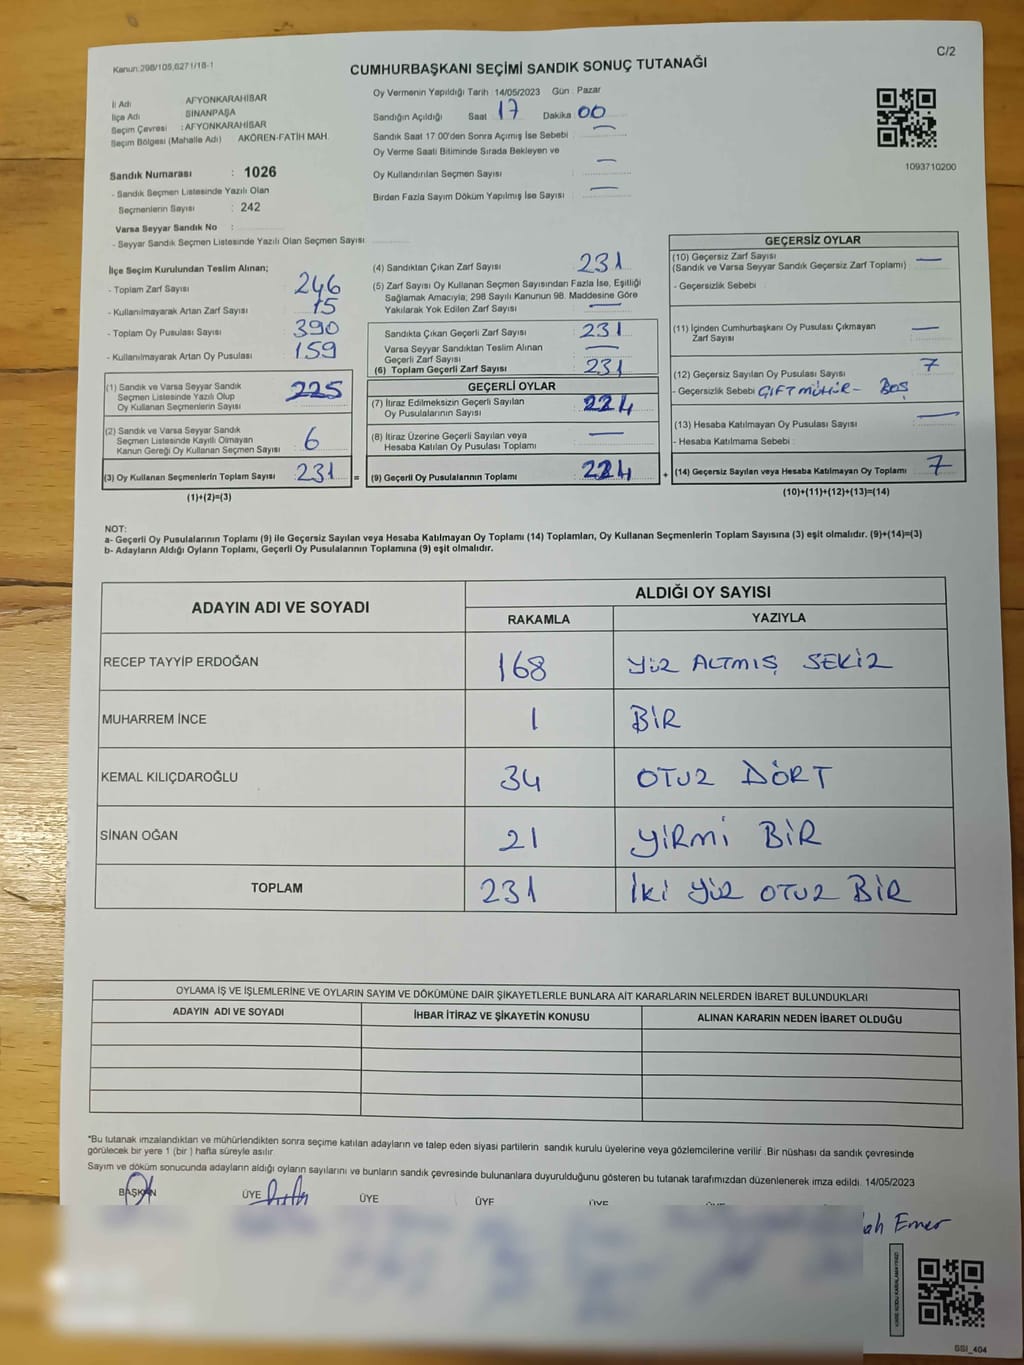 Kanun:298/105,6271/18-1
C/2
CUMHURBAŞKANI SEÇİMİ SANDIK SONUÇ TUTANAĞI
İl Adı AFYONKARAHİSAR
İlçe Adı SİNANPAŞA
Seçim Çevresi : AFYONKARAHİSAR
Seçim Bölgesi (Mahalle Adı) AKÖREN-FATİH MAH.
Sandık Numarası : 1026
- Sandık Seçmen Listesinde Yazılı Olan
Seçmenlerin Sayısı : 242
Varsa Seyyar Sandık No :
- Seyyar Sandık Seçmen Listesinde Yazılı Olan Seçmen Sayısı
Oy Vermenin Yapıldığı Tarih : 14/05/2023 Gün : Pazar
Sandığın Açıldığı Saat 17 Dakika 00
Sandık Saat 17.00'den Sonra Açımış İse Sebebi : —
Oy Verme Saati Bitiminde Sırada Bekleyen ve
Oy Kullandırılan Seçmen Sayısı : —
Birden Fazla Sayım Döküm Yapılmış İse Sayısı : —
1093710200
İlçe Seçim Kurulundan Teslim Alınan;
- Toplam Zarf Sayısı : 246
- Kullanılmayarak Artan Zarf Sayısı : 15
- Toplam Oy Pusulası Sayısı : 390
- Kullanılmayarak Artan Oy Pusulası : 159
(1) Sandık ve Varsa Seyyar Sandık
Seçmen Listesinde Yazılı Olup
Oy Kullanan Seçmenlerin Sayısı : 225
(2) Sandık ve Varsa Seyyar Sandık
Seçmen Listesinde Kayıtlı Olmayan
Kanun Gereği Oy Kullanan Seçmen Sayısı : 6
(3) Oy Kullanan Seçmenlerin Toplam Sayısı : 231 =
(1)+(2)=(3)
(4) Sandıktan Çıkan Zarf Sayısı : 231
(5) Zarf Sayısı Oy Kullanan Seçmen Sayısından Fazla İse, Eşitliği
Sağlamak Amacıyla; 298 Sayılı Kanunun 98. Maddesine Göre
Yakılarak Yok Edilen Zarf Sayısı : —
Sandıkta Çıkan Geçerli Zarf Sayısı : 231
Varsa Seyyar Sandıktan Teslim Alınan
Geçerli Zarf Sayısı : —
(6) Toplam Geçerli Zarf Sayısı : 231
GEÇERLİ OYLAR
(7) İtiraz Edilmeksizin Geçerli Sayılan
Oy Pusulalarının Sayısı : 224
(8) İtiraz Üzerine Geçerli Sayılan veya
Hesaba Katılan Oy Pusulası Toplamı : —
(9) Geçerli Oy Pusulalarının Toplamı : 224 +
GEÇERSİZ OYLAR
(10) Geçersiz Zarf Sayısı : —
(Sandık ve Varsa Seyyar Sandık Geçersiz Zarf Toplamı)
- Geçersizlik Sebebi :
(11) İçinden Cumhurbaşkanı Oy Pusulası Çıkmayan : —
Zarf Sayısı
(12) Geçersiz Sayılan Oy Pusulası Sayısı : 7
- Geçersizlik Sebebi : ÇİFT MÜHÜR - BOŞ
(13) Hesaba Katılmayan Oy Pusulası Sayısı : —
- Hesaba Katılmama Sebebi :
(14) Geçersiz Sayılan veya Hesaba Katılmayan Oy Toplamı : 7
(10)+(11)+(12)+(13)=(14)
NOT:
a- Geçerli Oy Pusulalarının Toplamı (9) ile Geçersiz Sayılan veya Hesaba Katılmayan Oy Toplamı (14) Toplamları, Oy Kullanan Seçmenlerin Toplam Sayısına (3) eşit olmalıdır. (9)+(14)=(3)
b- Adayların Aldığı Oyların Toplamı, Geçerli Oy Pusulalarının Toplamına (9) eşit olmalıdır.
ADAYIN ADI VE SOYADI
ALDIĞI OY SAYISI
RAKAMLA YAZIYLA
RECEP TAYYİP ERDOĞAN 168 YÜZ ALTMIŞ SEKİZ
MUHARREM İNCE 1 BİR
KEMAL KILIÇDAROĞLU 34 OTUZ DÖRT
SİNAN OĞAN 21 YİRMİ BİR
TOPLAM 231 İKİ YÜZ OTUZ BİR
OYLAMA İŞ VE İŞLEMLERİNE VE OYLARIN SAYIM VE DÖKÜMÜNE DAİR ŞİKAYETLERLE BUNLARA AİT KARARLARIN NELERDEN İBARET BULUNDUKLARI
ADAYIN ADI VE SOYADI İHBAR İTİRAZ VE ŞİKAYETİN KONUSU ALINAN KARARIN NEDEN İBARET OLDUĞU
*Bu tutanak imzalandıktan ve mühürlendikten sonra seçime katılan adayların ve talep eden siyasi partilerin sandık kurulu üyelerine veya gözlemcilerine verilir. Bir nüshası da sandık çevresinde
görülecek bir yere 1 (bir ) hafta süreyle asılır.
Sayım ve döküm sonucunda adayların aldığı oyların sayılarını ve bunların sandık çevresinde bulunanlara duyurulduğunu gösteren bu tutanak tarafımızdan düzenlenerek imza edildi. 14/05/2023
BAŞKAN ÜYE ÜYE ÜYE ÜYE
Emer
SSI_404